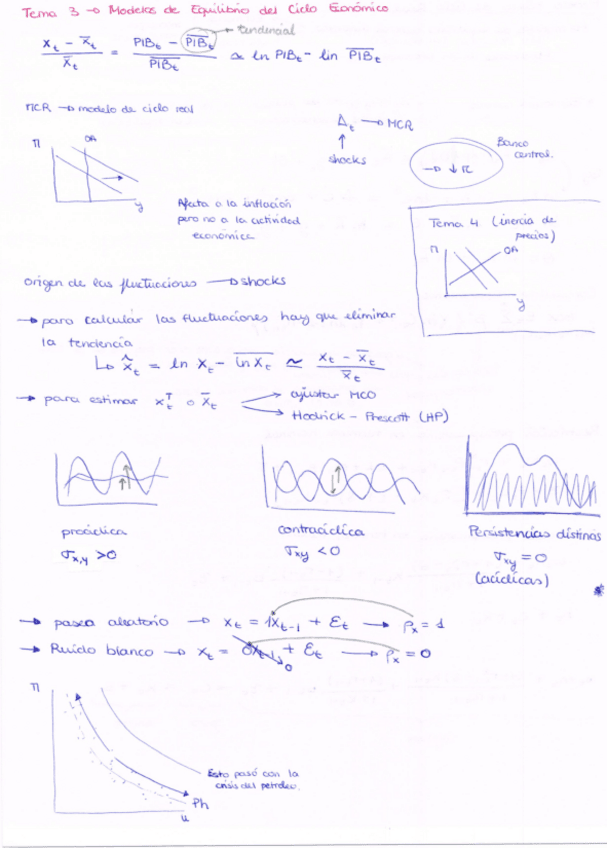 Tema 3 → Modelos de Equilibrio del Ciclo Económico
(x_t - x̄_t) / x̄_t = (PIB_t - \overline{PIB_t}) / \overline{PIB_t} ≃ ln PIB_t - ln \overline{PIB_t}
tendencial
MCR → modelo de ciclo real
Δ_t → MCR
↑
shocks
Banco
central.
→ ↓ π
Π
OA
y
Afecta a la inflación
pero no a la actividad
económica
Tema 4 (inercia de
precios)
Π
OA
y
origen de las fluctuaciones → shocks
→ para calcular las fluctuaciones hay que eliminar
la tendencia
↳ x̂_t = ln x_t - \overline{ln x_t} ≃ (x_t - x̄_t) / x̄_t
→ para estimar x_t^T o x̄_t
→ ajustar MCO
→ Hodrick - Prescott (HP)
procíclica
σ_{x,y} > 0
contracíclica
σ_{xy} < 0
Persistencias distinas
σ_{xy} = 0
(acíclicas)
→ paseo aleatorio → x_t = 1x_{t-1} + ε_t → ρ_x = 1
→ Ruido blanco → x_t = 0x_{t-1} + ε_t → ρ_x = 0
0
Π
Esto pasó con la
crisis del petroleo.
Ph
u